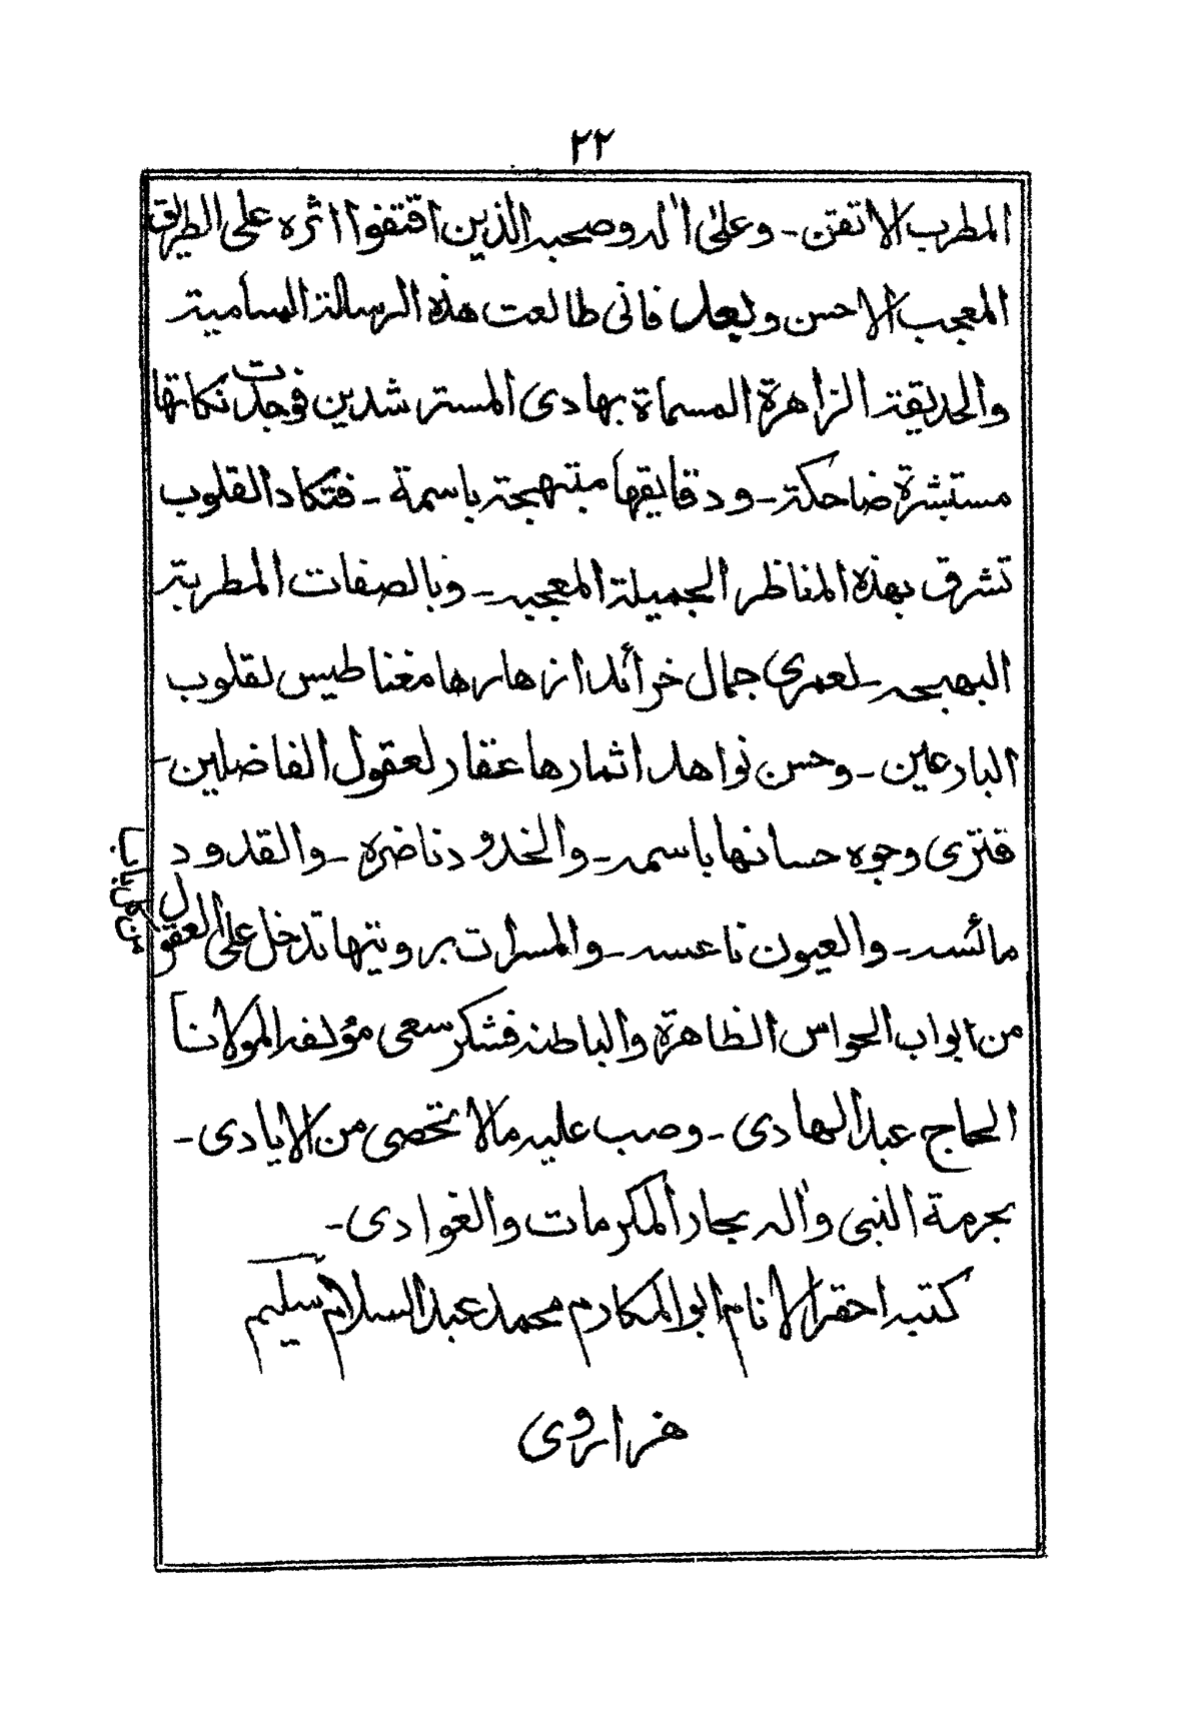 ٢٢
المطرب الاتقن - وعلىٰ اٰله وصحبه الذين اقتفوا اثره على الطريق
المعجب الاحسن وبعد فانى طالعت هذه الرسالة السامية
والحديقة الزاهرة المسماة بهادى المسترشدين فوجدت نكاتها
مستبشرة ضاحكة - ودقايقها مبتهجة باسمة - فتكاد القلوب
تشرق بهذه المناظر الجميلة المعجبه - وبالصفات المطربة
البهيجه - لعمرى جمال خرائد ازهارها مغناطيس لقلوب
البارعين - وحسن نواهد اثمارها عقار لعقول الفاضلين -
فترى وجوه حسانها باسمه - والخدود ناضره - والقدود
مائسه - والعيون ناعسه - والمسرات برويتها تدخل على العقول
من كل باب
من ابواب الحواس الظاهرة والباطنه فشكر سعى مؤلفه المولانا
الحاج عبد الهادى - وصب عليه مالا تحصى من الايادى -
بحرمة النبى واٰله بحار المكرمات والغوادى -
كتبه احقر الانام ابو المكارم محمد عبد السلام سليم
هزاروى